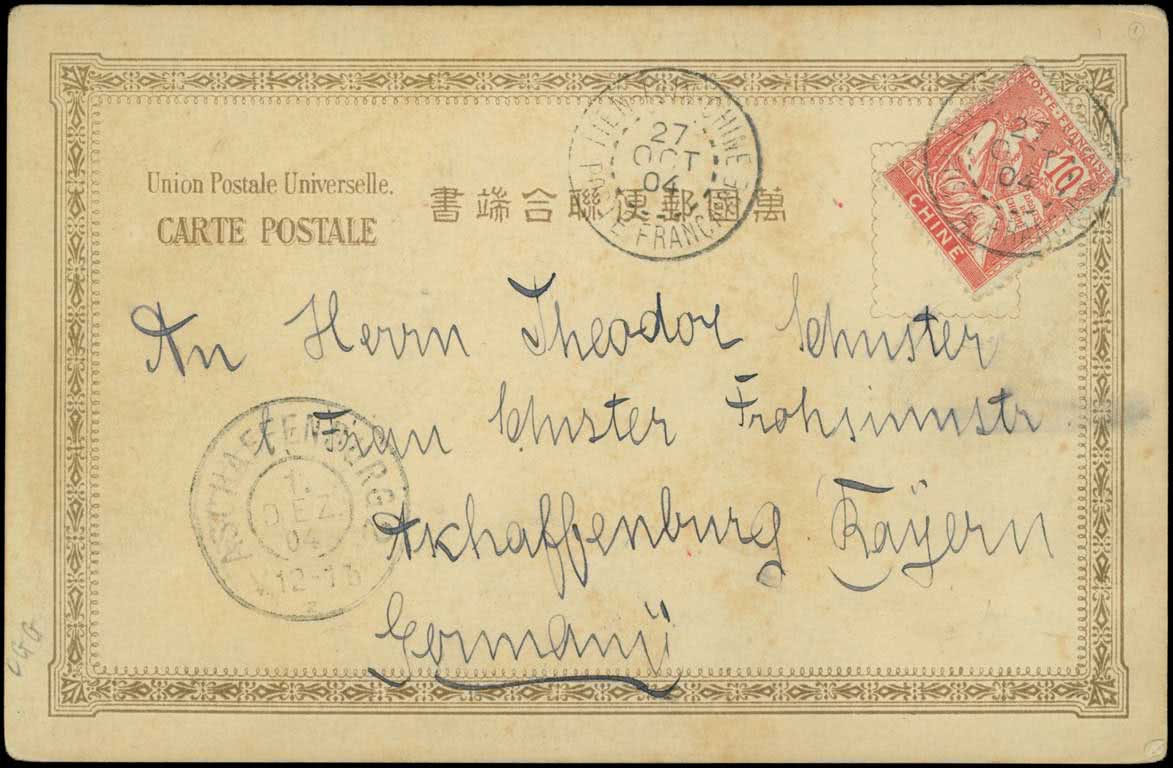 Union Postale Universelle.
CARTE POSTALE
書端合聯便郵國萬
TIEN-TSIN CHINE
27
OCT
04
POSTE FRANCAISE
POSTE FRANÇAISE
10
CHINE
27
OCT
04
An Herrn Theodor Schuster
b Frau Schuster Frohsinnstr
Aschaffenburg Bayern
Germany
ASCHAFFENBURG
1.
DEZ.
04